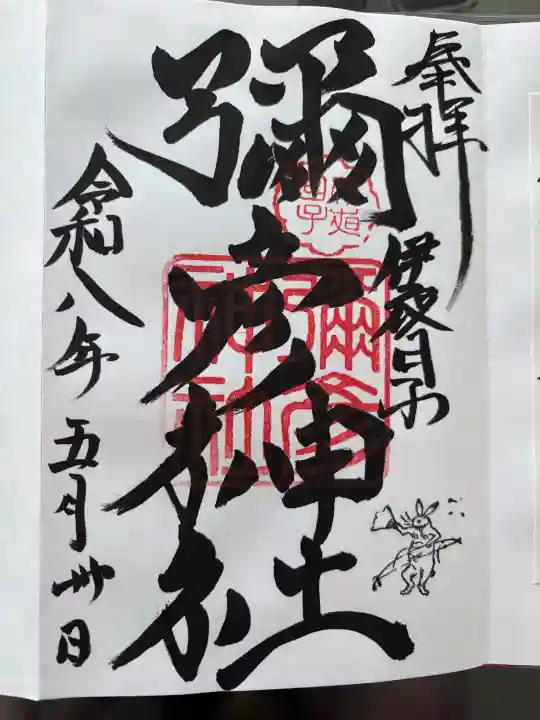 奉拝
伊夜日子
彌彦神社
令和八年五月卅日
彌彦
神社